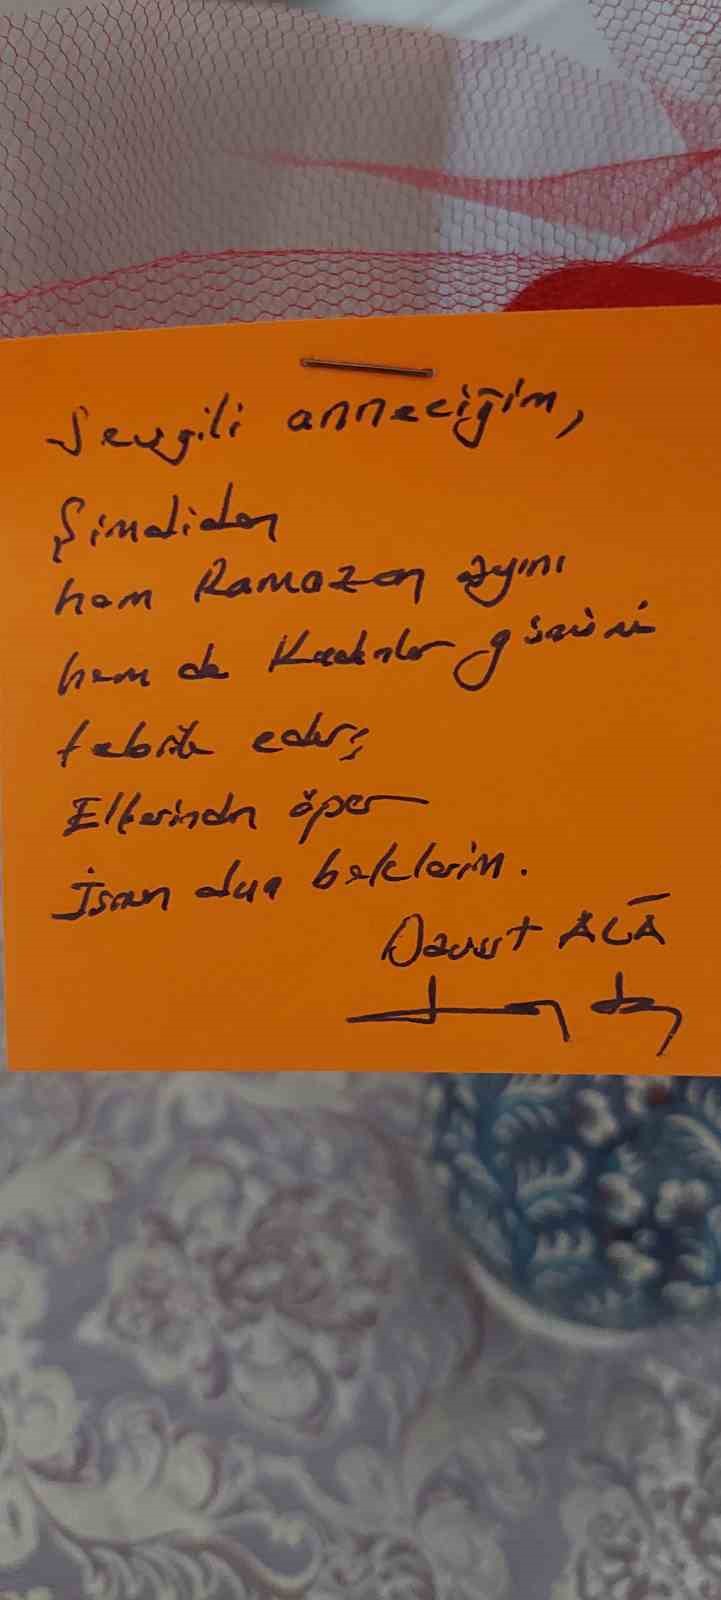 Sevgili anneciğim,
Şimdiden
hem Ramazan ayını
hem de Kadınlar gününü
tebrik eder;
Ellerinden öper
dua beklerim.
Davut ALĀ